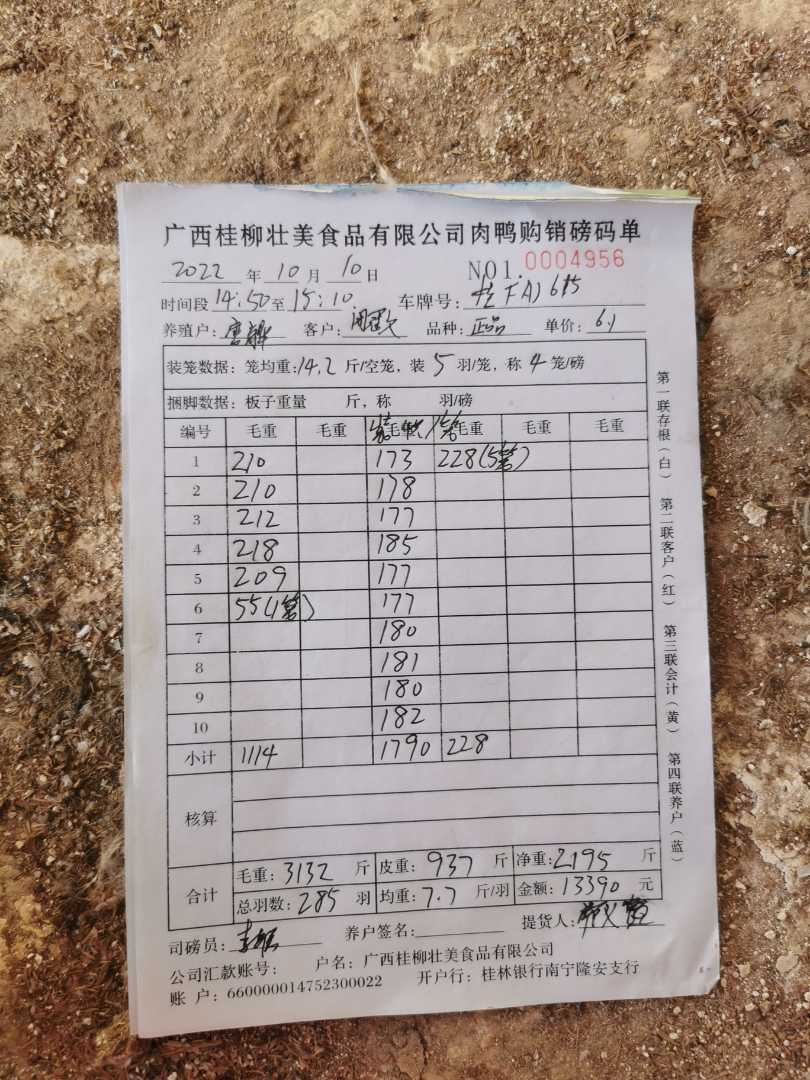 广西桂柳壮美食品有限公司肉鸭购销磅码单
2022 年 10 月 10 日 NO1. 0004956
时间段 14:50 至 15:10 车牌号:
养殖户: 客户: 品种: 正品 单价: 6.1
装笼数据: 笼均重: 14.2 斤/空笼, 装 5 羽/笼, 称 4 笼/磅
捆脚数据: 板子重量 斤, 称 羽/磅
编号 毛重 毛重 毛重 毛重 毛重 毛重
1 210 173 228(5笼)
2 210 178
3 212 177
4 218 185
5 209 177
6 55(1笼) 177
7 180
8 181
9 180
10 182
小计 1114 1790 228
核算
合计
毛重: 3132 斤 皮重: 937 斤 净重: 2195 斤
总羽数: 285 羽 均重: 7.7 斤/羽 金额: 13390 元
司磅员: 养户签名: 提货人:
公司汇款账号: 户名: 广西桂柳壮美食品有限公司
账 户: 660000014752300022 开户行: 桂林银行南宁隆安支行
第一联存根(白) 第二联客户(红) 第三联会计(黄) 第四联养户(蓝)